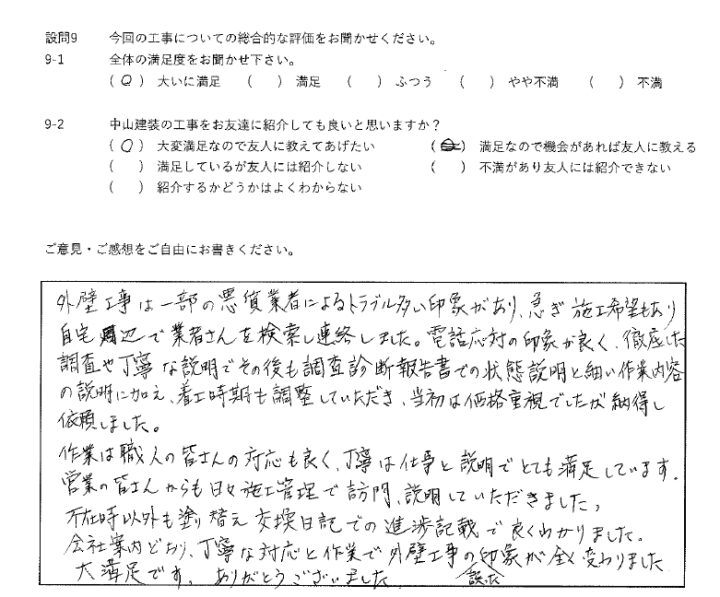 設問9 今回の工事についての総合的な評価をお聞かせください。
9-1 全体の満足度をお聞かせ下さい。
(○) 大いに満足 ( ) 満足 ( ) ふつう ( ) やや不満 ( ) 不満
9-2 中山建装の工事をお友達に紹介しても良いと思いますか?
(○) 大変満足なので友人に教えてあげたい ( ) 満足なので機会があれば友人に教える
( ) 満足しているが友人には紹介しない ( ) 不満があり友人には紹介できない
( ) 紹介するかどうかはよくわからない
ご意見・ご感想をご自由にお書きください。
外壁工事は一部の悪質業者によるトラブル多い印象があり、急ぎ施工希望もあり
自宅周辺で業者さんを検索し連絡しました。電話応対の印象が良く、徹底した
調査や丁寧な説明でその後も調査診断報告書での状態説明と細い作業内容
の説明に加え、着工時期も調整していただき、当初は価格重視でしたが納得し
依頼しました。
作業は職人の皆さんの対応も良く、丁寧は仕事と説明でとても満足しています。
営業の皆さんからも日々施工管理で訪問、説明していただきました。
不在時以外も塗り替え交換日記での進捗記載で良くわかりました。
会社案内どおり、丁寧な対応と作業で外壁工事の印象が全く変わりました
大満足です。ありがとうございました